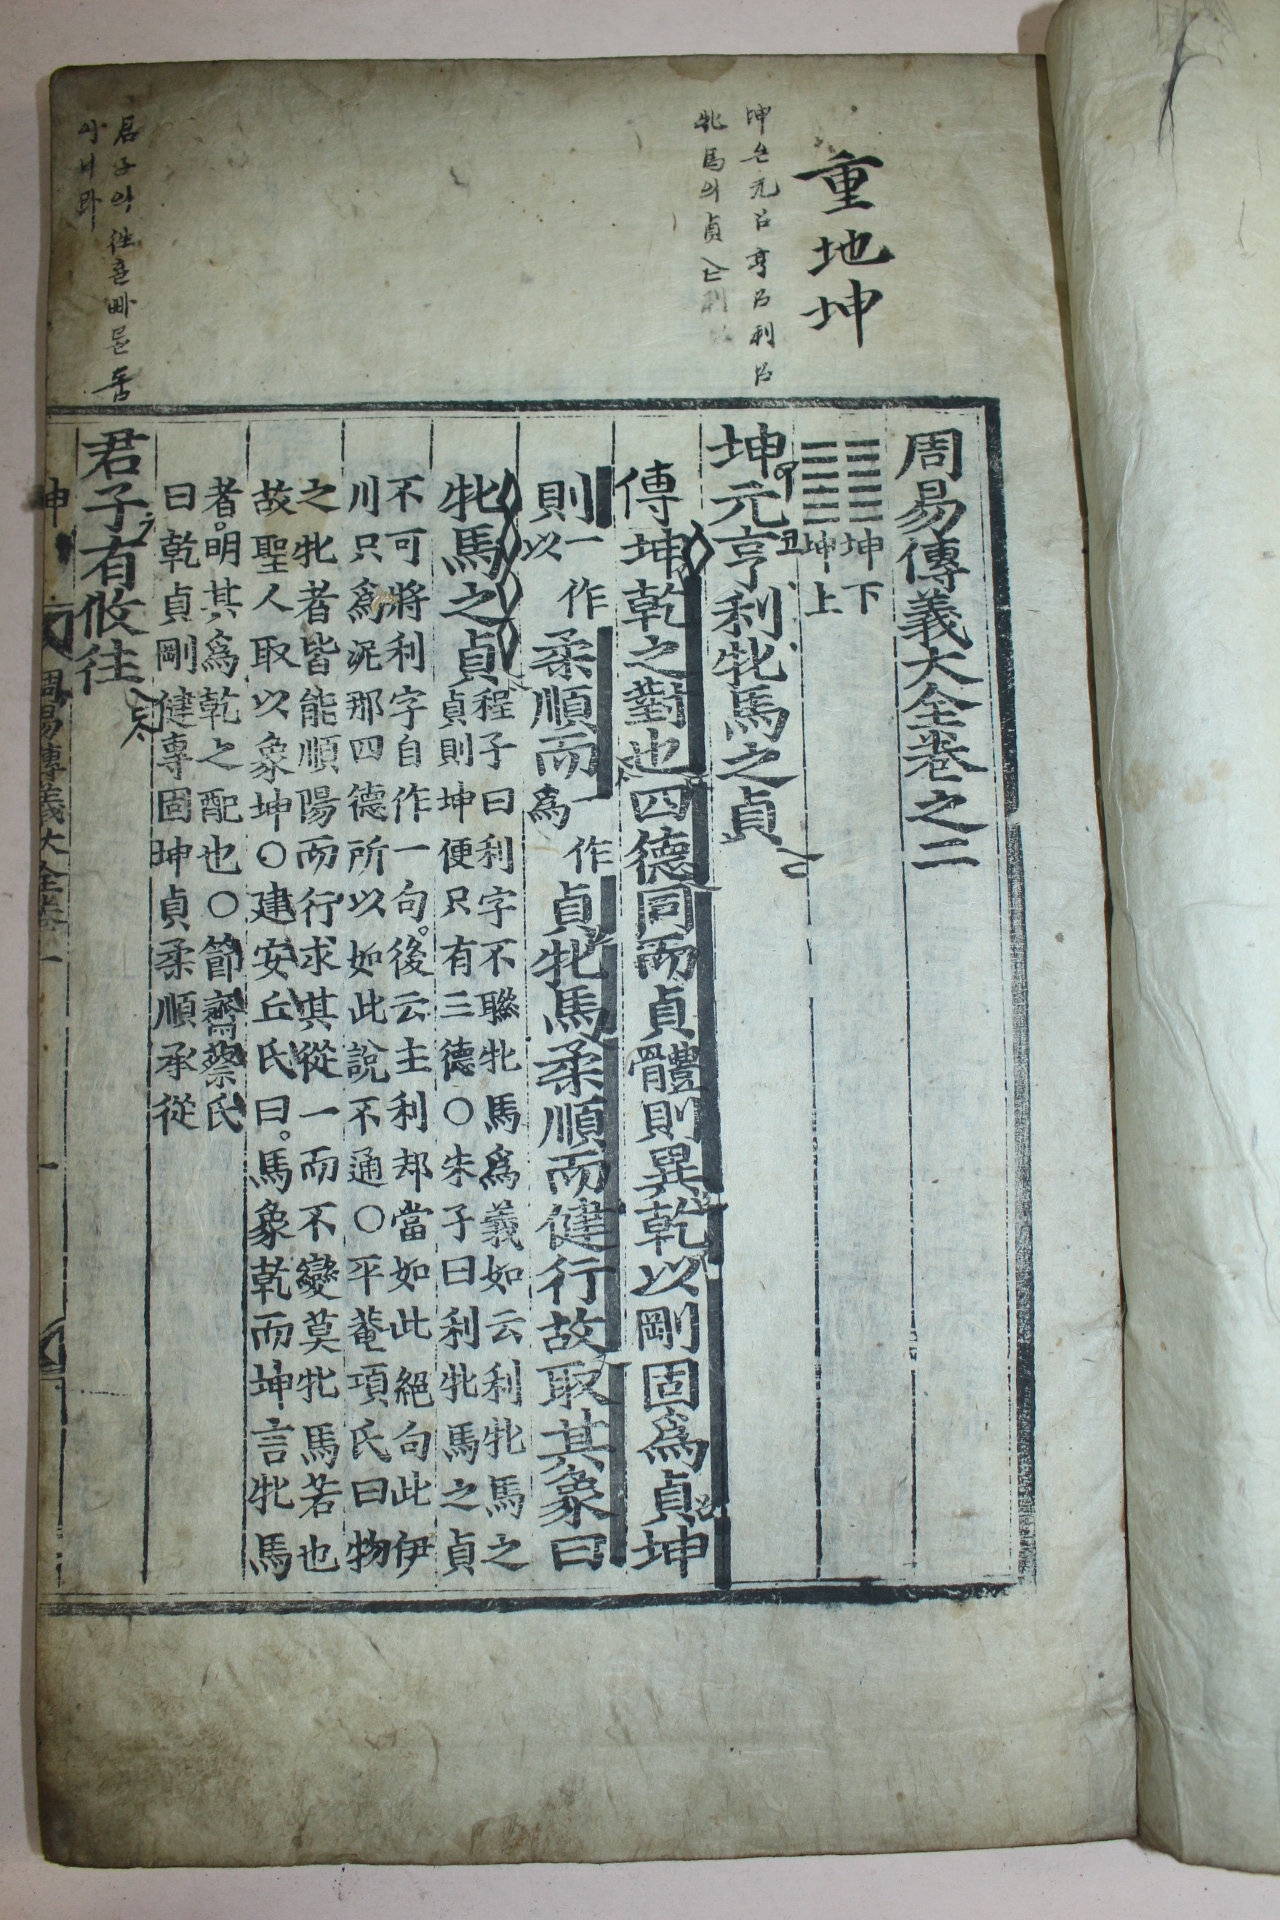 重地坤
坤은元코亨코利코
牝馬의貞
君子의徃홀빠를둠
이니라
周易傳義大全卷之二
坤下
坤上
坤元亨利牝馬之貞
傳坤乾之對也四德同而貞體則異乾以剛固爲貞坤
則一作以柔順而一作爲貞牝馬柔順而健行故取其象曰
牝馬之貞
程子曰利字不聯牝馬爲義如云利牝馬之
貞則坤便只有三德○朱子曰利牝馬之貞
不可將利字自作一句後云主利却當如此絕句此伊
川只爲泥那四德所以如此說不通○平菴項氏曰物
之牝者皆能順陽而行求其從一而不變莫牝馬若也
故聖人取以象坤○建安丘氏曰馬象乾而坤言牝馬
者明其爲乾之配也○節齋蔡氏
曰乾貞剛健專固坤貞柔順承從
君子有攸往
坤
周易傳義大全卷二
一